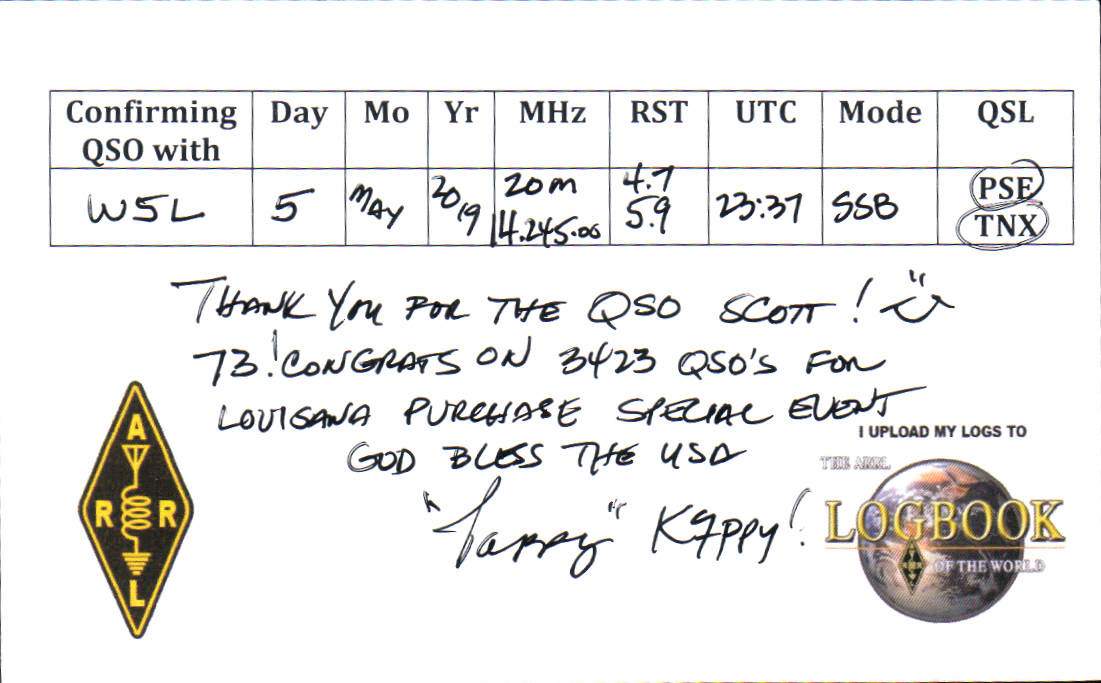 Confirming QSO with | Day | Mo | Yr | MHz | RST | UTC | Mode | QSL
W5L | 5 | MAY | 2019 | 20m 14.245.00 | 4.7 5.9 | 23:37 | SSB | PSE TNX
THANK YOU FOR THE QSO SCOTT!
73! CONGRATS ON 3423 QSO'S FOR
LOUISANA PURCHASE SPECIAL EVENT
GOD BLESS THE USA
"Pappy" K9PPY!
A
R R
L
I UPLOAD MY LOGS TO
THE ARRL
LOGBOOK
OF THE WORLD